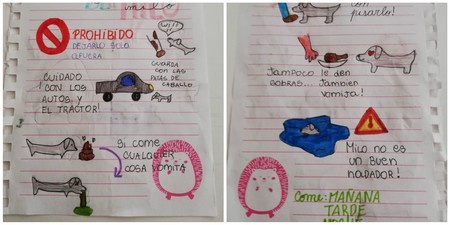 milo
PROHIBIDO
DEJARLO SOLO
AFUERA
GUARDA
CON LAS
PATAS DE
CABALLO
CUIDADO
CON LOS
AUTOS, Y
EL TRACTOR!
Si COME
CUALQUIER
COSA VOMITA
con
pisarlo!
TAMPOCO LE DEN
SOBRAS... TAMBIEN
VOMITA!
Milo NO ES
UN BUEN
NADADOR!
COME: MAÑANA
TARDE
NOCHE